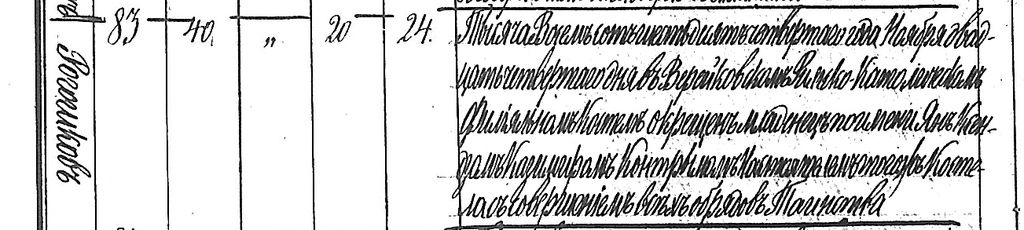 83 40 „ 20 24. Тысяча Восемьсотъ четвертаго года Ноября двад-
цать четвертаго дня въ Верейковскомъ Римско-Католическомъ
Филіяльномъ Костелѣ окрещенъ младенецъ по имени Янъ Ксен-
дзомъ Контримомъ Косте-
ла съ совершеніемъ всѣхъ обрядовъ Таинства